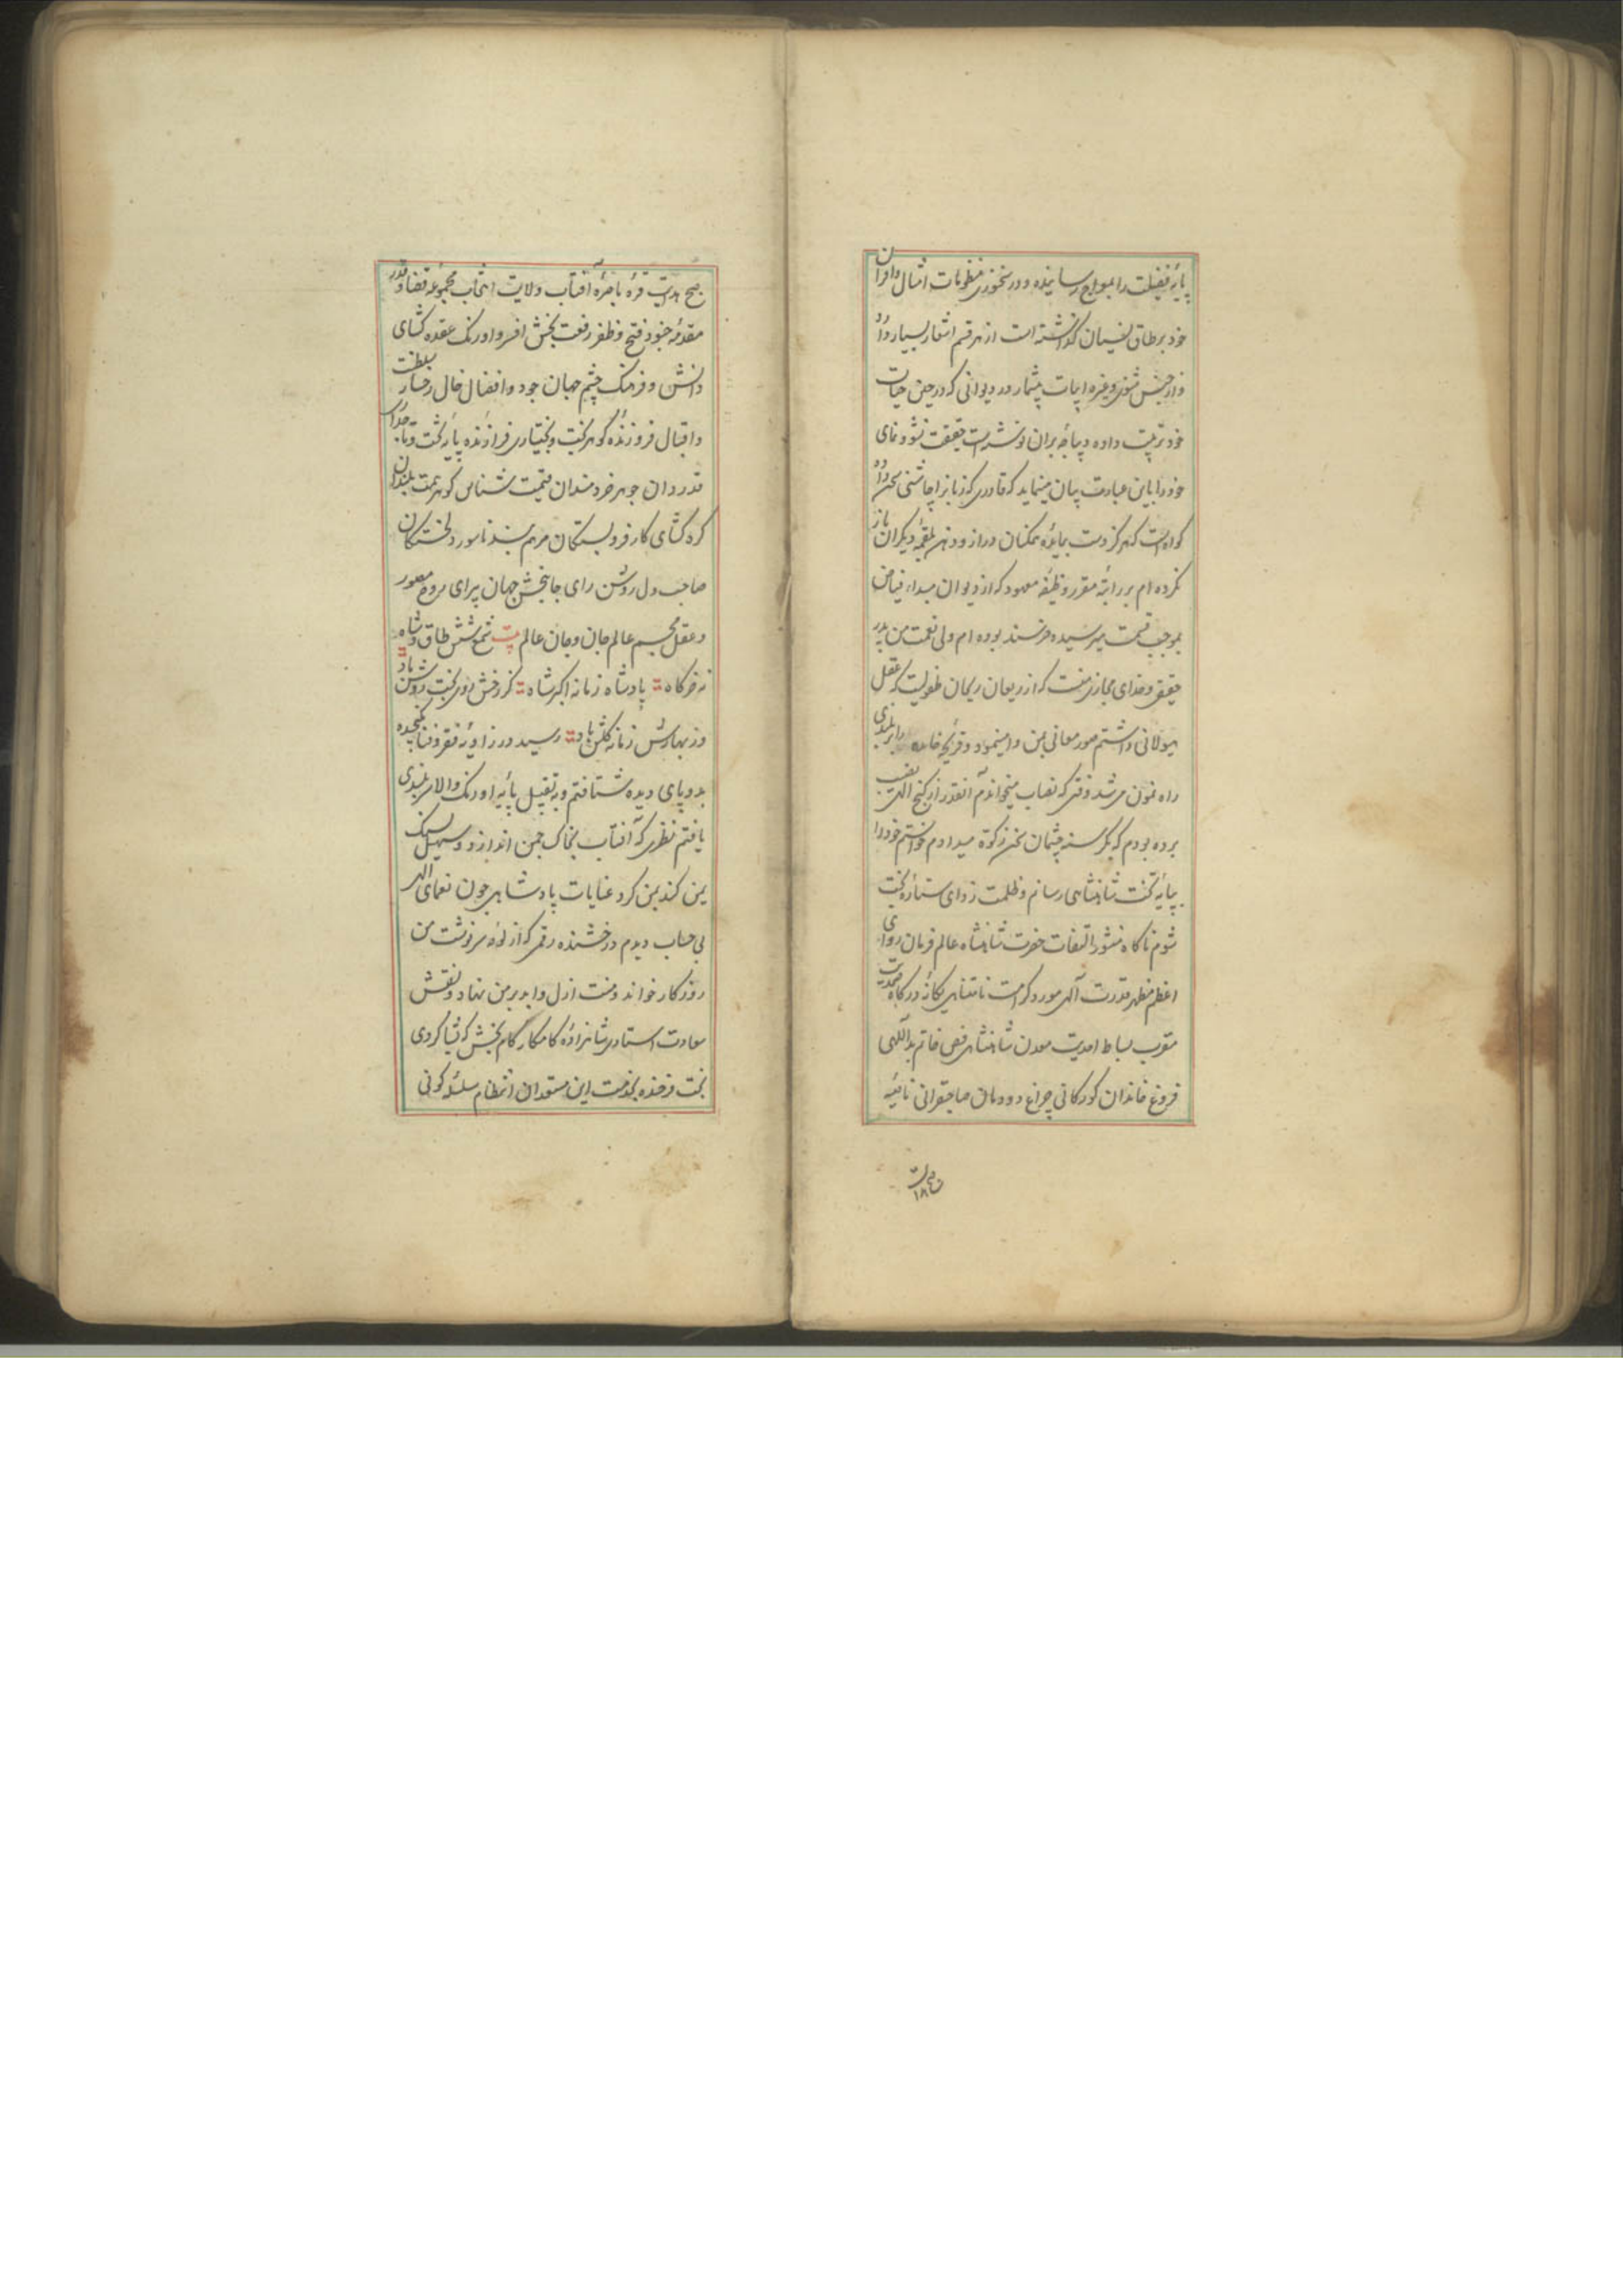 پایهٔ فضیلت را بمعراج رسانیده و در سخنوری منظومات امثال و اقران
خود بر طاق نسیان گذاشته است از هر قسم اشعار بسیار دارد
و از جنس مثنوی و غیره ابیات بیشمار در دیوانی که در حین حیات
خود ترتیب داده دیباجه بران نوشته است حقیقت نشو و نمای
خود را باین عبارت بیان مینماید که قادری که زبانرا چاشنی سخن داد
کواه است که هرگز دست بمایدهٔ ممکنان دراز و دهن بلقمهٔ دیگران باز
نکرده ام بر راتبه مقرر وظیفه معهود که از دیوان مبداء فیاض
بموجب قسمت میرسیده خرسند بوده ام ولی نعمت من پدر
حقیقی و خدای مجازی منست که از ریعان ریحان طفولیت که عقل
هیولانی داشتم صور معانی بمن وا مینمود و قریحه خامه را ببلندی
راه نمون میشد وقتی که نصاب میخواندم آنقدر از گنج الهی نصیب
برده بودم که بگرسنه چشمان سخن زکوة میدادم خواستم خود را
بپایه تخت شاهنشاهی رسانم و ظلمت زدای ستاره بخت
شوم ناکاه منشور التفات حضرت شاهنشاه عالم فرمان روای
اعظم مظهر قدرت آلهی مورد کرامت نامتناهی یکانهٔ درکاه صمدیت
مقرب بساط احدیت معدن شاهنشاهی فص خاتم یداللهی
فروغ خاندان کورکانی چراغ دودمان صاحبقرانی ناصیه
۱۸
صبح هدایت قرهٔ باصرهٔ آفتاب ولایت انتخاب مجموعه قضا و قدر
مقدمهٔ جنود فتح و ظفر رفعت بخش افسر و اورنک عقده کشای
دانش و فرهنک چشم جهان جود و افضال خال رخسار سلطنت
و اقبال فروزندهٔ کوهر بخت و بختیاری فرازنده پایه تخت و تاجداری
قدردان جوهر خردمندان قیمت شناس کوهر همت بلندان
کره کشای کار فروبستکان مرهم بند ناسور دلخستکان
صاحب دل روشن رای جانبخش جهان پیرای روح مصور
و عقل مجسم عالم جان و جان عالم بیت شمع شش طاق و شاه
نه خرکاه پادشاه زمانه اکبر شاه کز رخش روی بخت روشن باد
وز بهارش زمانه گلشن باد رسید در زاویه فقر و فنا
بدو پای دیده شتافتم و به تقبیل پایه اورنک والا سربلندی
یافتم نظری که آفتاب بخاک چمن اندازد و سهیل بسنک
یمن کند بمن کرد عنایات پادشاهی چون نعمای الهی
بی حساب دیدم درخشنده رقمی که از لوح سرنوشت من
روزکار خواند و منت ازل و ابد بر من نهاد و نقش
سعادت استادی شاهزادهٔ کامکار
بخت فرخنده بخدمت این مستعدان انتظام سلسله کونی